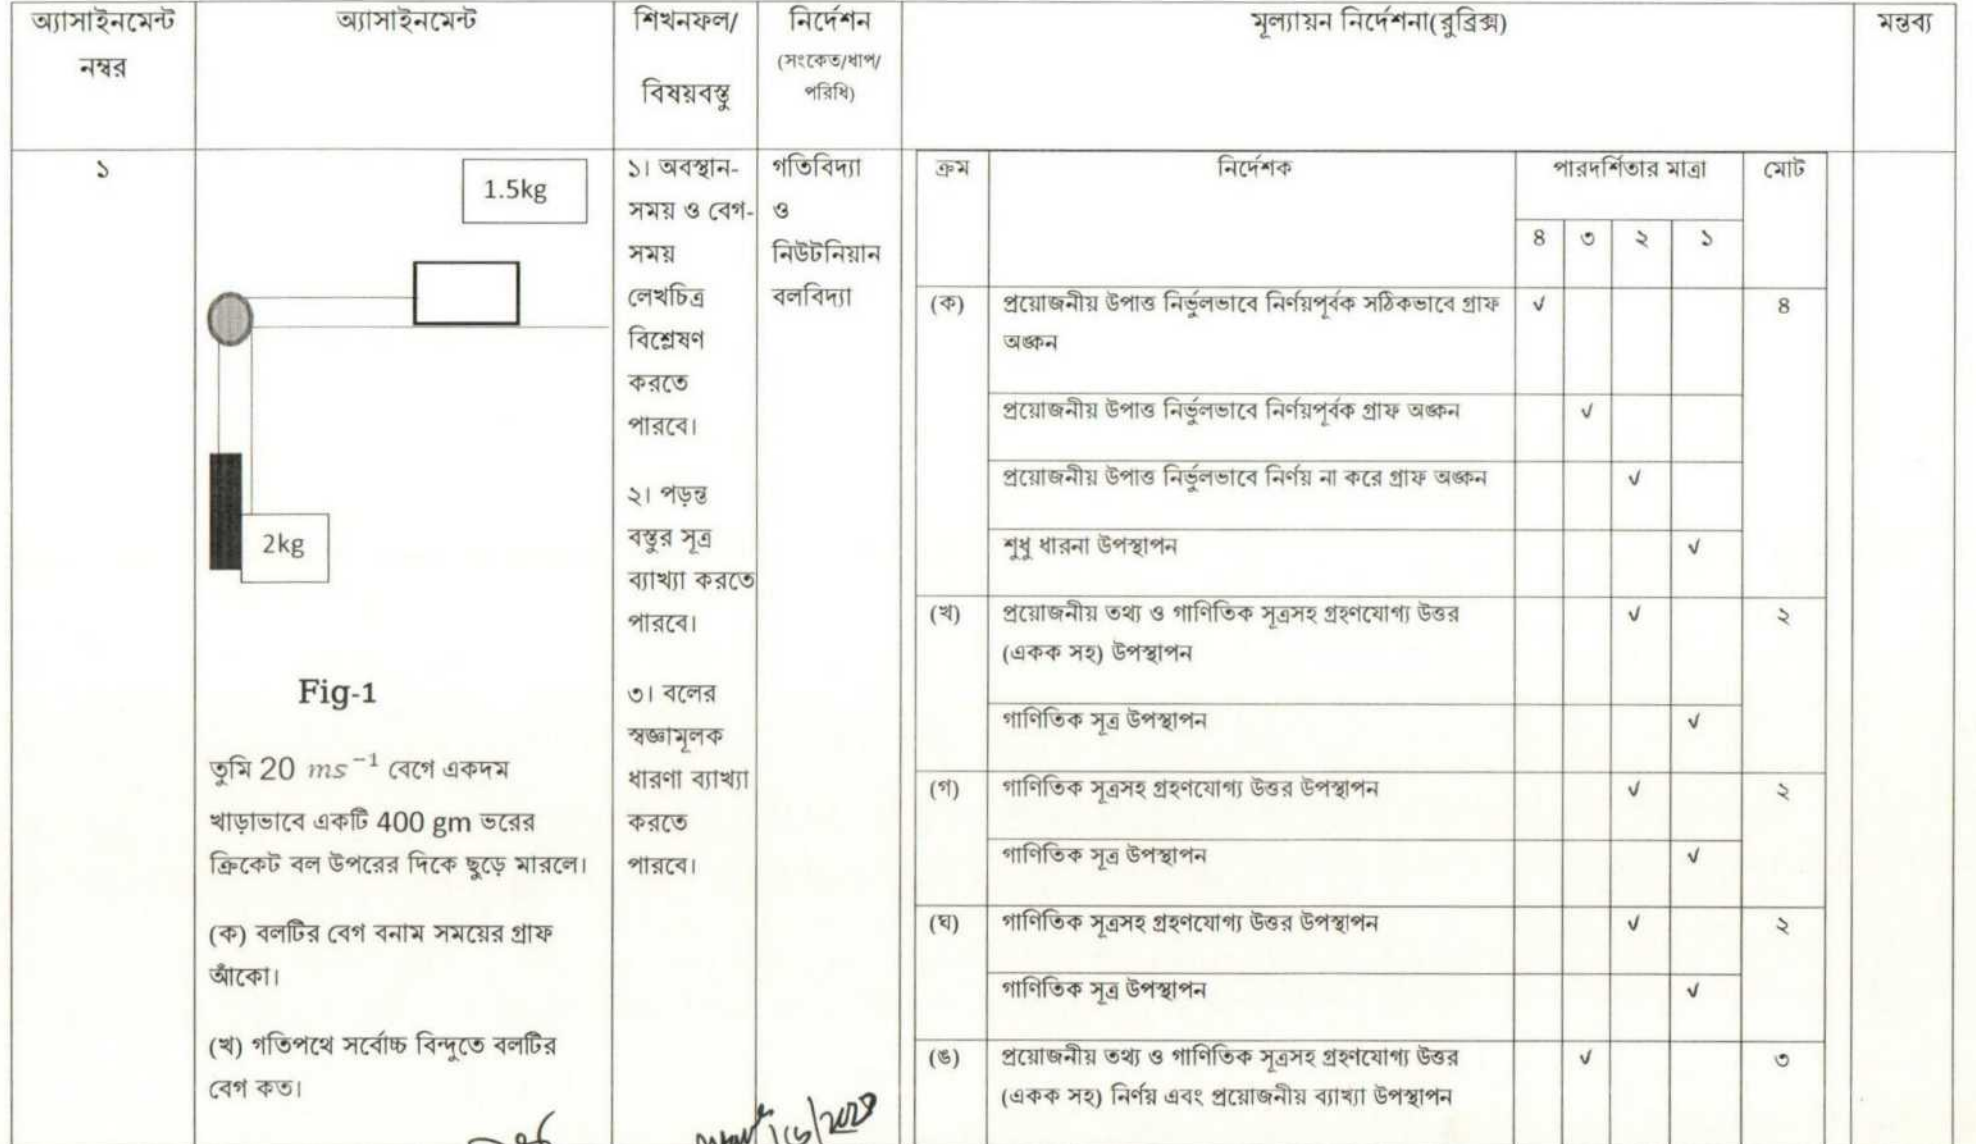 অ্যাসাইনমেন্ট
নম্বর
অ্যাসাইনমেন্ট
শিখনফল/
বিষয়বস্তু
নির্দেশন
(সংকেত/ধাপ/
পরিধি)
মূল্যায়ন নির্দেশনা(রুব্রিক্স)
মন্তব্য
১
1.5kg
2kg
Fig-1
তুমি 20 ms⁻¹ বেগে একদম
খাড়াভাবে একটি 400 gm ভরের
ক্রিকেট বল উপরের দিকে ছুড়ে মারলে।
(ক) বলটির বেগ বনাম সময়ের গ্রাফ
আঁকো।
(খ) গতিপথে সর্বোচ্চ বিন্দুতে বলটির
বেগ কত।
১। অবস্থান-
সময় ও বেগ-
সময়
লেখচিত্র
বিশ্লেষণ
করতে
পারবে।
২। পড়ন্ত
বস্তুর সূত্র
ব্যাখ্যা করতে
পারবে।
৩। বলের
স্বজ্ঞামূলক
ধারণা ব্যাখ্যা
করতে
পারবে।
গতিবিদ্যা
ও
নিউটনিয়ান
বলবিদ্যা
ক্রম
নির্দেশক
পারদর্শিতার মাত্রা
মোট
৪ ৩ ২ ১
(ক) প্রয়োজনীয় উপাত্ত নির্ভুলভাবে নির্ণয়পূর্বক সঠিকভাবে গ্রাফ √ ৪
অঙ্কন
প্রয়োজনীয় উপাত্ত নির্ভুলভাবে নির্ণয়পূর্বক গ্রাফ অঙ্কন √
প্রয়োজনীয় উপাত্ত নির্ভুলভাবে নির্ণয় না করে গ্রাফ অঙ্কন √
শুধু ধারনা উপস্থাপন √
(খ) প্রয়োজনীয় তথ্য ও গাণিতিক সূত্রসহ গ্রহণযোগ্য উত্তর √ ২
(একক সহ) উপস্থাপন
গাণিতিক সূত্র উপস্থাপন √
(গ) গাণিতিক সূত্রসহ গ্রহণযোগ্য উত্তর উপস্থাপন √ ২
গাণিতিক সূত্র উপস্থাপন √
(ঘ) গাণিতিক সূত্রসহ গ্রহণযোগ্য উত্তর উপস্থাপন √ ২
গাণিতিক সূত্র উপস্থাপন √
(ঙ) প্রয়োজনীয় তথ্য ও গাণিতিক সূত্রসহ গ্রহণযোগ্য উত্তর √ ৩
(একক সহ) নির্ণয় এবং প্রয়োজনীয় ব্যাখ্যা উপস্থাপন